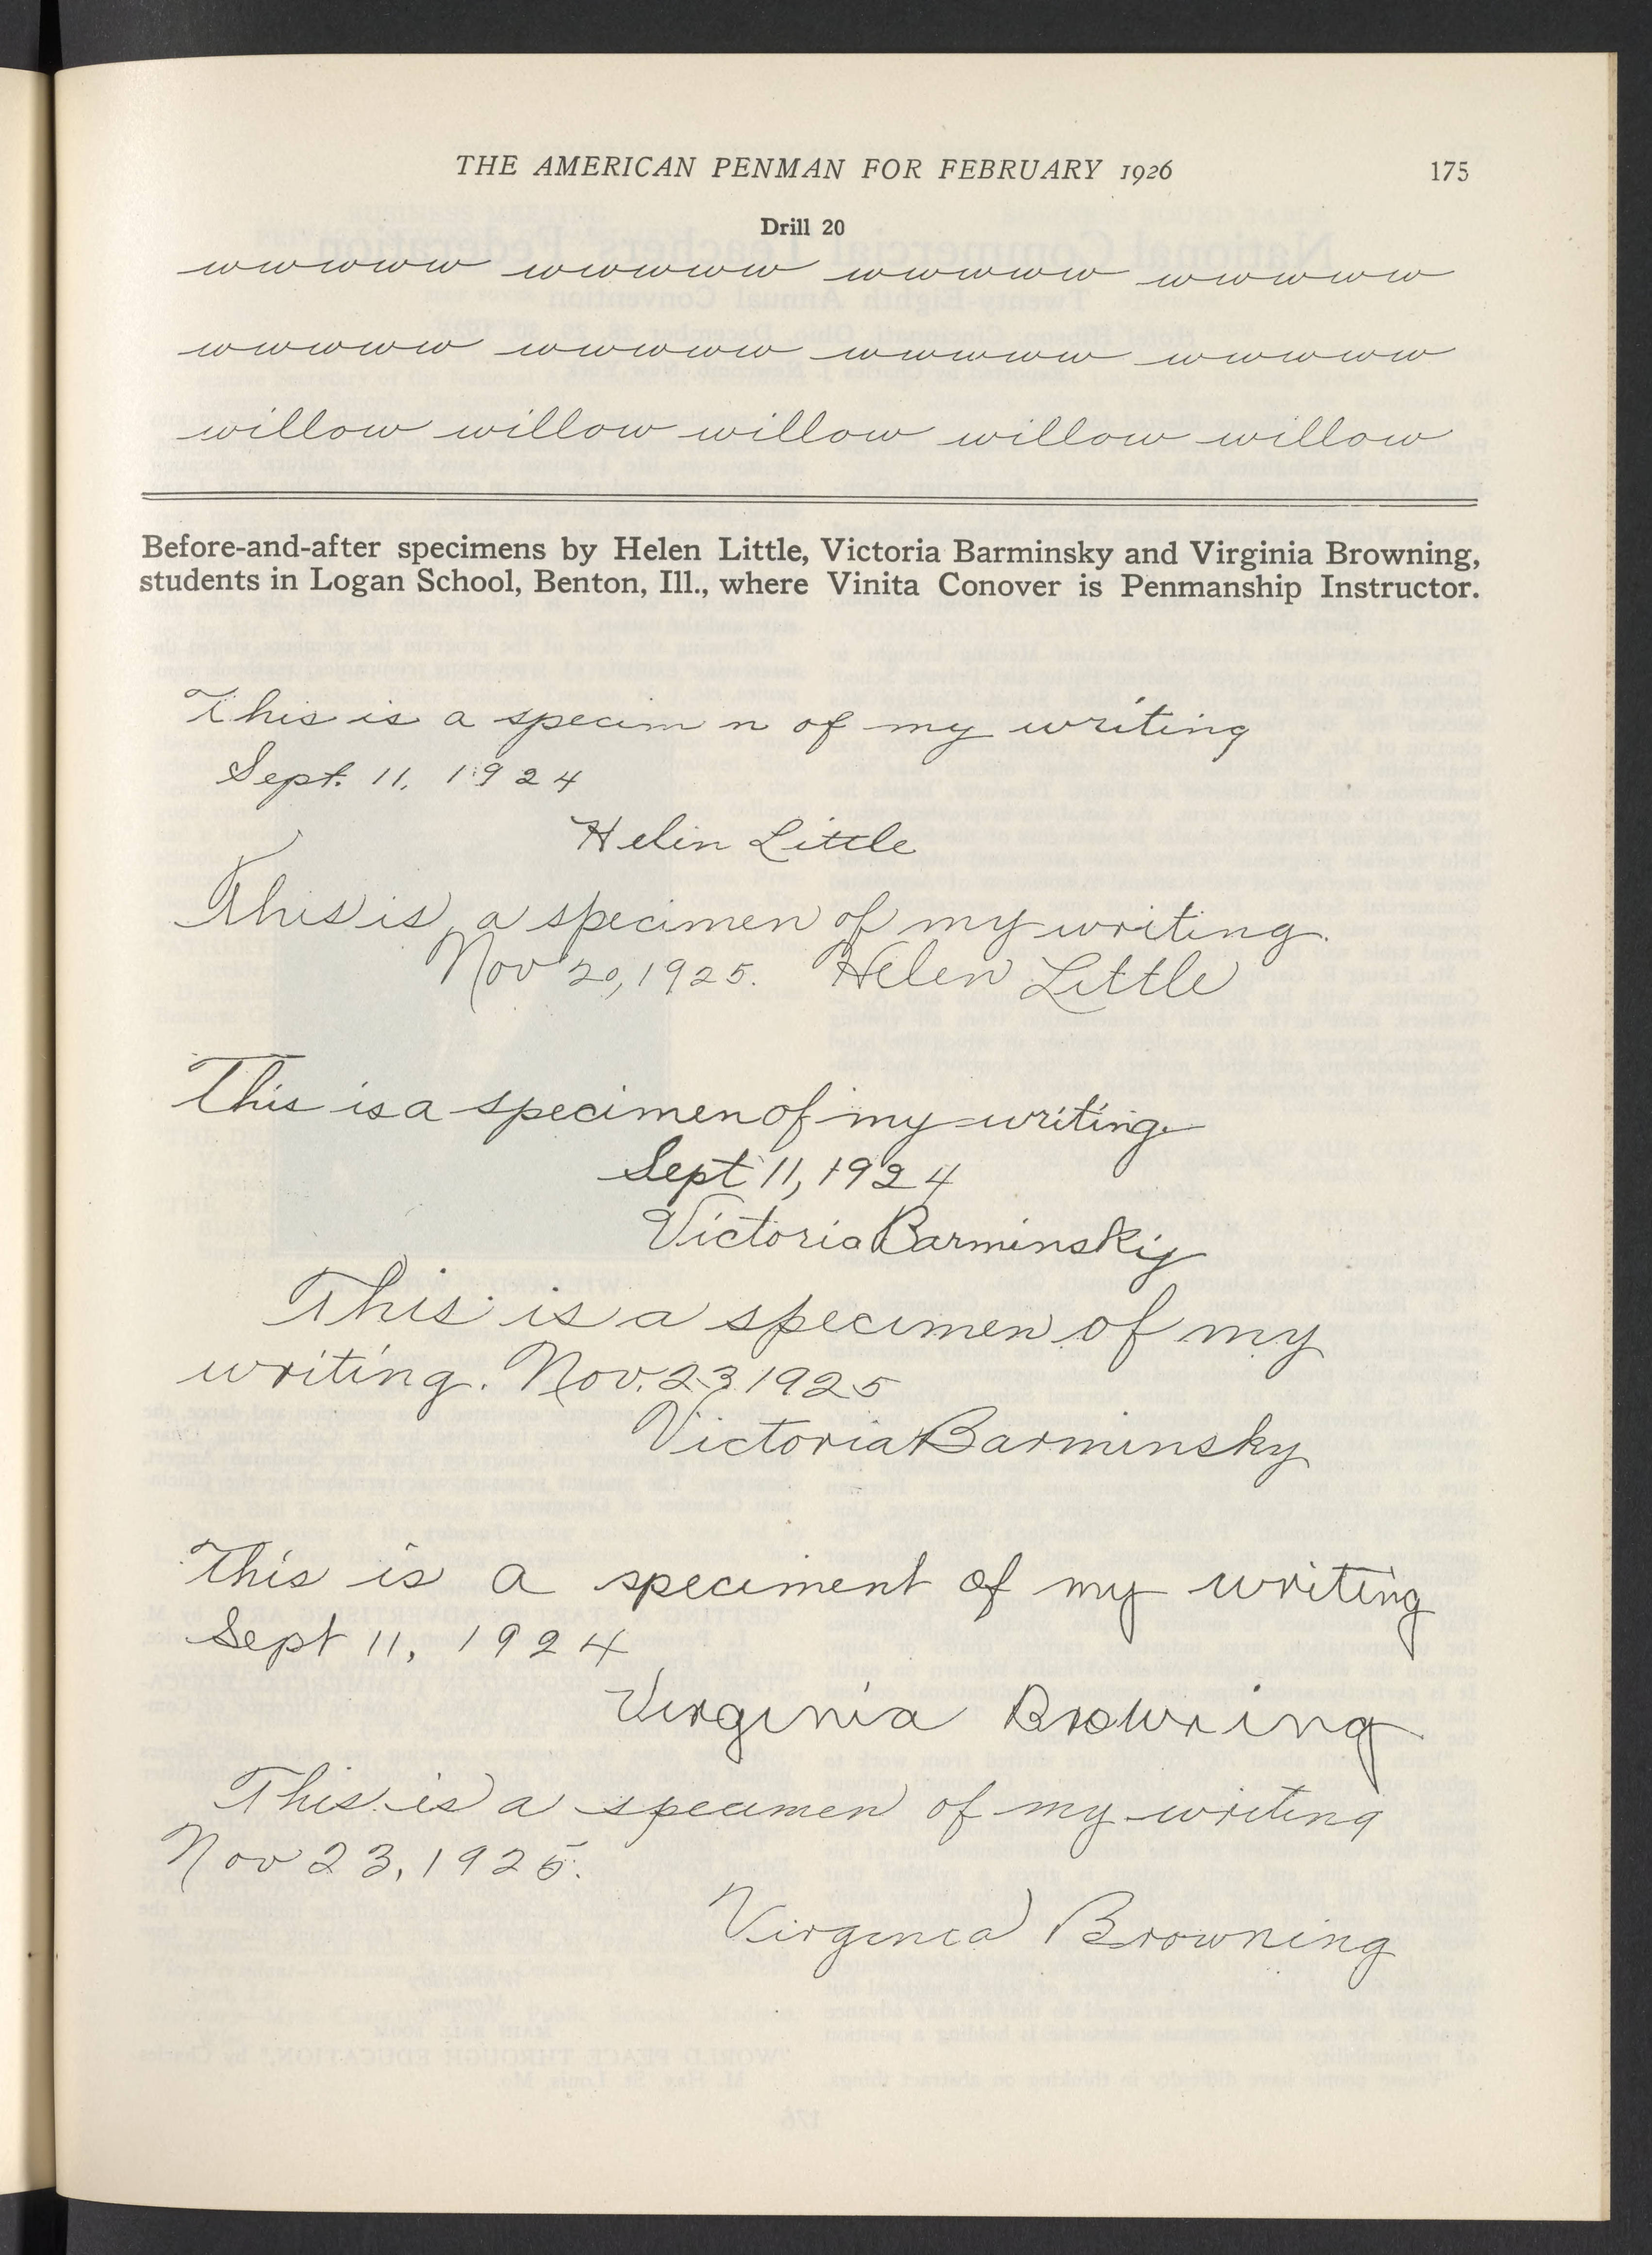 THE AMERICAN PENMAN FOR FEBRUARY 1926 175
Drill 20
wwwwww wwwwww wwwwww wwwwww
wwwwww wwwwww wwwwww wwwwww
willow willow willow willow willow
Before-and-after specimens by Helen Little, Victoria Barminsky and Virginia Browning,
students in Logan School, Benton, Ill., where Vinita Conover is Penmanship Instructor.
This is a specim n of my writing
Sept. 11, 1924
Helin Little
This is a specimen of my writing.
Nov 20, 1925. Helen Little
This is a specimen of my writing
Sept 11, 1924
Victoria Barminskiy
This is a specimen of my
writing. Nov. 23 1925
Victoria Barminsky
This is a speciment of my writing
Sept 11, 1924
Virginia Browning
This is a specimen of my writing
Nov 23, 1925.
Virginia Browning